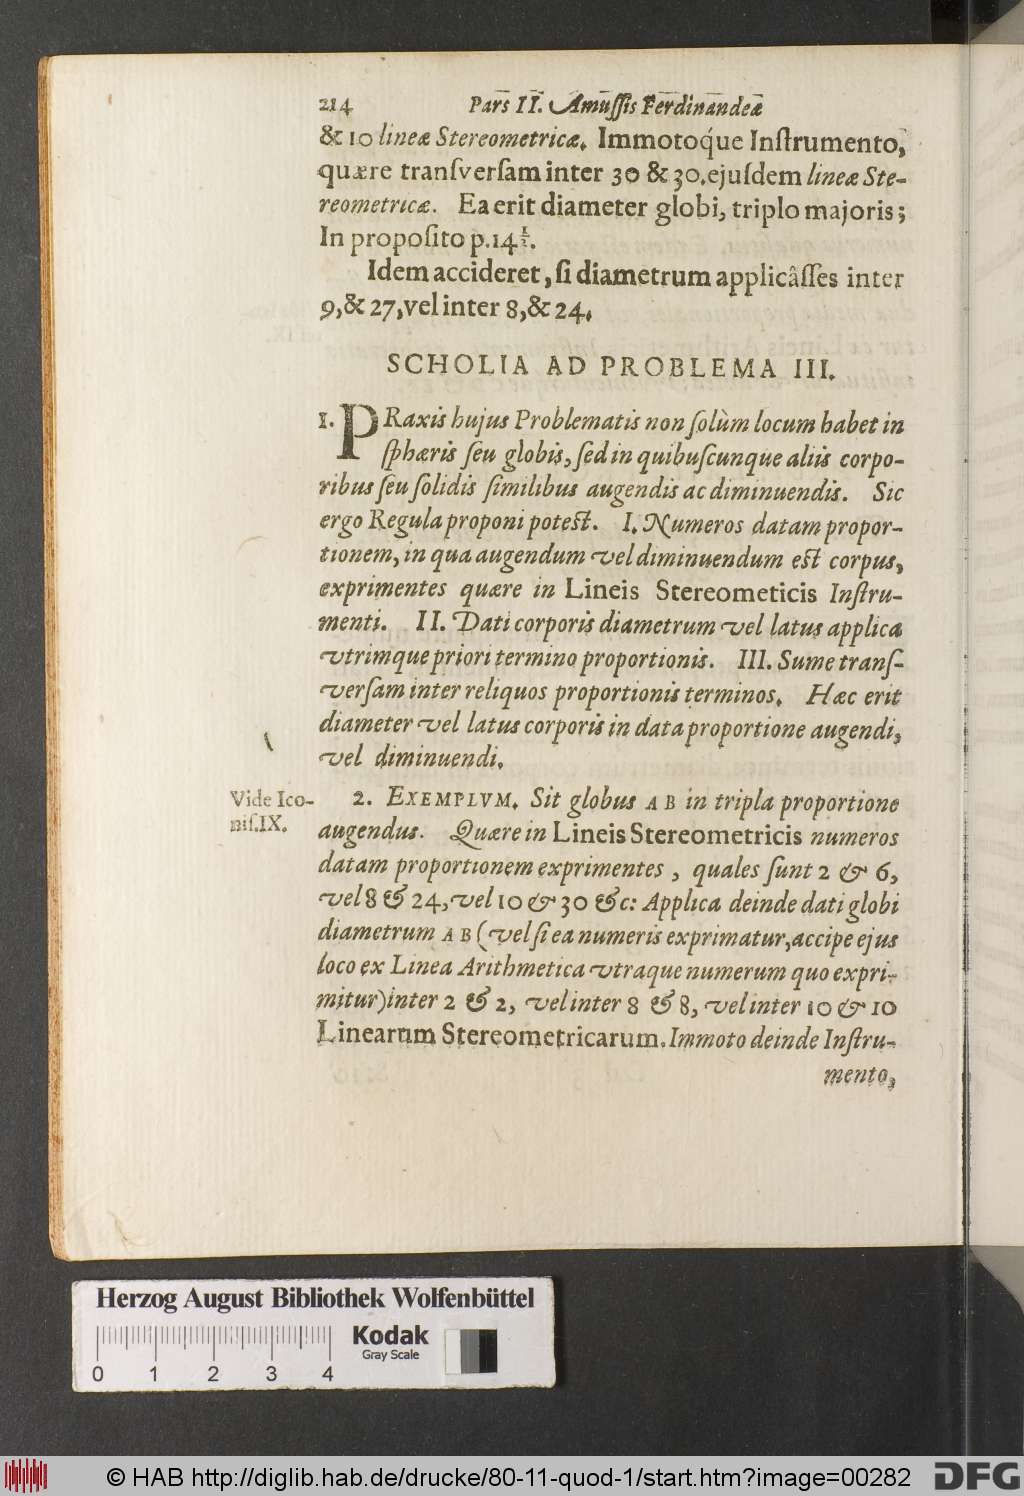 214 Pars II. Amuſſis Ferdinandeæ
& 10 lineæ Stereometricæ. Immotoq́ue Inſtrumento,
quære tranſverſam inter 30 & 30. ejuſdem lineæ Ste-
reometricæ. Ea erit diameter globi, triplo majoris;
In propoſito p. 14 1/2.
Idem accideret, ſi diametrum applicâſſes inter
9, & 27, vel inter 8, & 24.
SCHOLIA AD PROBLEMA III.
1. PRaxis hujus Problematis non ſolùm locum habet in
ſphæris ſeu globis, ſed in quibuſcunque aliis corpo-
ribus ſeu ſolidis ſimilibus augendis ac diminuendis. Sic
ergo Regula proponi poteſt. I. Numeros datam propor-
tionem, in qua augendum vel diminuendum eſt corpus,
exprimentes quære in Lineis Stereometicis Inſtru-
menti. II. Dati corporis diametrum vel latus applica
vtrimque priori termino proportionis. III. Sume tranſ-
verſam inter reliquos proportionis terminos. Hæc erit
diameter vel latus corporis in data proportione augendi,
vel diminuendi.
Vide Ico-
niſ. IX.
2. EXEMPLVM. Sit globus A B in tripla proportione
augendus. Quære in Lineis Stereometricis numeros
datam proportionem exprimentes, quales ſunt 2 & 6,
vel 8 & 24, vel 10 & 30 &c: Applica deinde dati globi
diametrum A B (vel ſi ea numeris exprimatur, accipe ejus
loco ex Linea Arithmetica vtraque numerum quo expri-
mitur) inter 2 & 2, vel inter 8 & 8, vel inter 10 & 10
Linearum Stereometricarum. Immoto deinde Inſtru-
mento,
Herzog August Bibliothek Wolfenbüttel
Kodak
Gray Scale
0 1 2 3 4
© HAB http://diglib.hab.de/drucke/80-11-quod-1/start.htm?image=00282
DFG